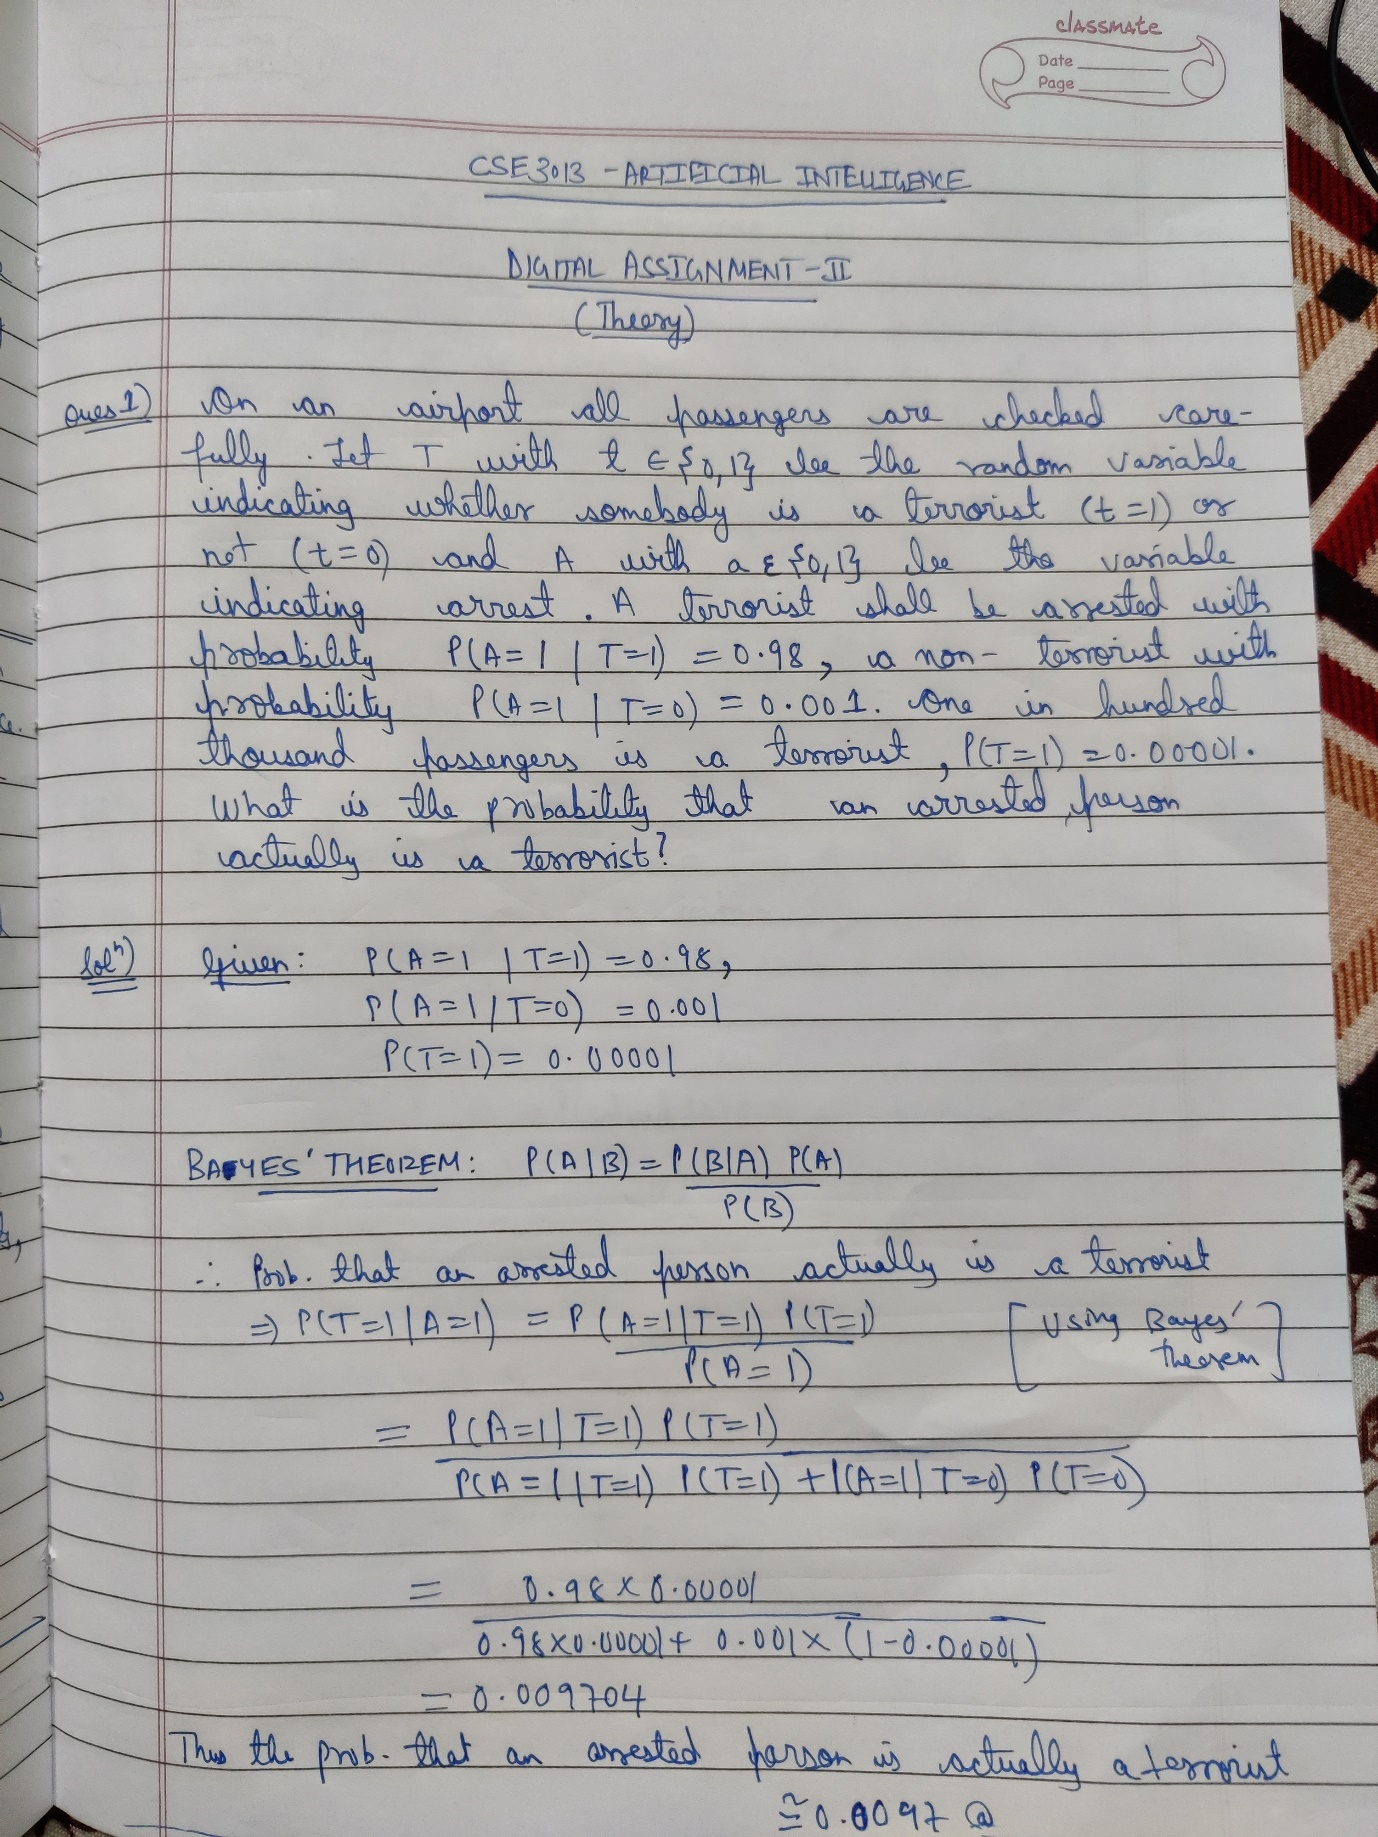 classmate
Date
Page
CSE3013 - ARTIFICIAL INTELLIGENCE
DIGITAL ASSIGNMENT - II
(Theory)
Ques 1) On an airport all passengers are checked care-
fully. Let T with t ∈ {0,1} be the random variable
indicating whether somebody is a terrorist (t=1) or
not (t=0) and A with a ε {0,1} be the variable
indicating arrest. A terrorist shall be arrested with
probability P(A=1 | T=1) = 0.98, a non-terrorist with
probability P(A=1 | T=0) = 0.001. One in hundred
thousand passengers is a terrorist, P(T=1) = 0.00001.
What is the probability that an arrested person
actually is a terrorist?
Solⁿ) Given: P(A=1 | T=1) = 0.98,
P(A=1 | T=0) = 0.001
P(T=1) = 0.00001
BAYES' THEOREM: P(A|B) = P(B|A) P(A)
P(B)
∴ Prob. that an arrested person actually is a terrorist
⇒ P(T=1|A=1) = P(A=1|T=1) P(T=1) [Using Bayes'
P(A=1) theorem]
= P(A=1|T=1) P(T=1)
P(A=1|T=1) P(T=1) + P(A=1|T=0) P(T=0)
= 0.98 x 0.00001
0.98x0.00001 + 0.001x (1-0.00001)
= 0.009704
Thus the prob. that an arrested parson is actually a terrorist
≅ 0.0097